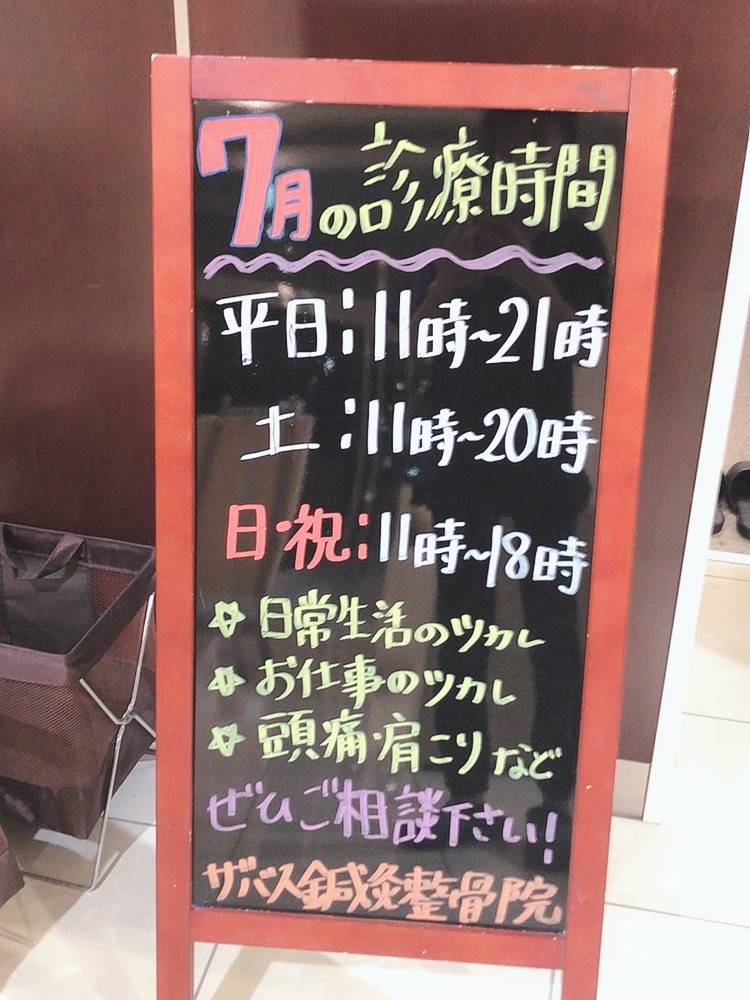 7月の診療時間
平日:11時~21時
土:11時~20時
日・祝:11時~18時
☆日常生活のツカレ
☆お仕事のツカレ
☆頭痛・肩こりなど
ぜひご相談下さい!
ザバス鍼灸整骨院